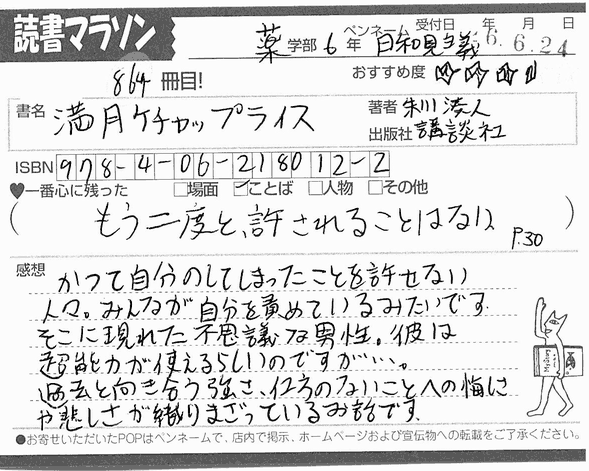 読書マラソン
薬 学部 6 年 ペンネーム 日和見主義 受付日 年 月 日
'16. 6. 24
864 冊目!
おすすめ度
書名 満月ケチャップライス
著者 朱川湊人
出版社 講談社
ISBN 978-4-06-218012-2
♥一番心に残った □場面 ☑ことば □人物 □その他
(もう二度と、許されることはない P.30)
感想
かつて自分のしてしまったことを許せない
人々。みんなが自分を責めているみたいです。
そこに現れた不思議な男性。彼は
超能力が使えるらしいのですが…。
過去と向き合う強さ、仕方のないことへの悔い
や悲しさが織りまざっているお話です
●お寄せいただいたPOPはペンネームで、店内で掲示、ホームページおよび宣伝物への転載をご了承ください。